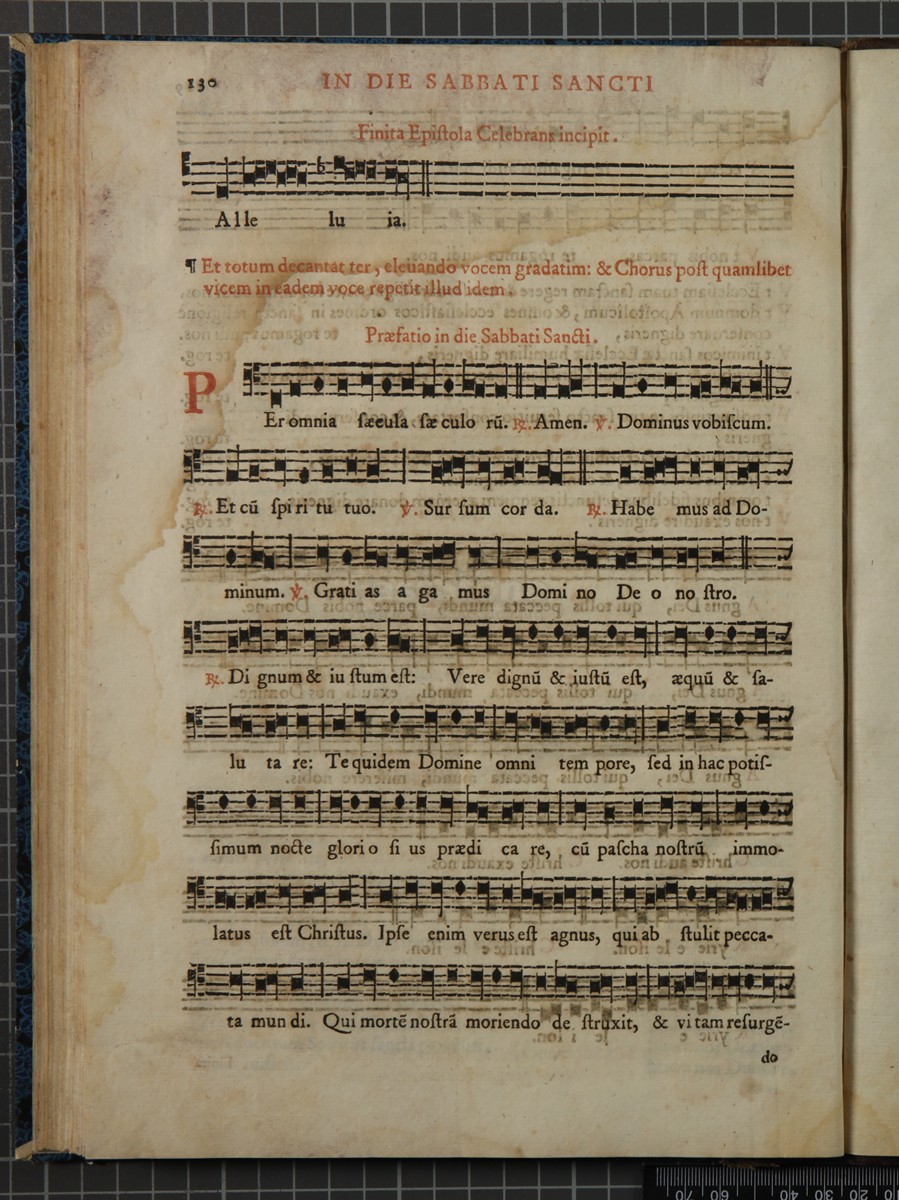 130 IN DIE SABBATI SANCTI
Finita Epiſtola Celebrans incipit.
Alle lu ia.
¶ Et totum decantat ter, eleuando vocem gradatim: & Chorus poſt quamlibet
vicem in eadem voce repetit illud idem.
Præfatio in die Sabbati Sancti.
PEr omnia ſæcula ſæ culo rũ. ℟. Amen. ℣. Dominus vobiſcum.
℟. Et cũ ſpi ri tu tuo. ℣. Sur ſum cor da. ℟. Habe mus ad Do-
minum. ℣. Grati as a ga mus Domi no De o no ſtro.
℟. Di gnum & iu ſtum eſt: Vere dignũ & iuſtũ eſt, æquũ & ſa-
lu ta re: Te quidem Domine omni tem pore, ſed in hac potiſ-
ſimum nocte glori o ſi us prædi ca re, cũ paſcha noſtrũ immo-
latus eſt Chriſtus. Ipſe enim verus eſt agnus, qui ab ſtulit pecca-
ta mun di. Qui mortẽ noſtrã moriendo de ſtruxit, & vi tam reſurgẽ-
do
70 60 50 40 30 20 10